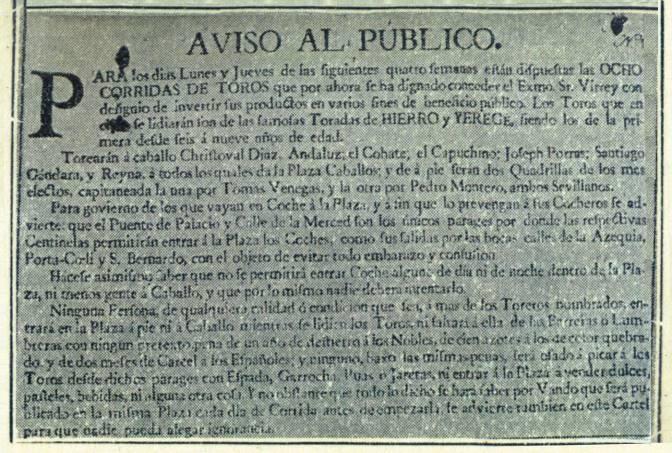 AVISO AL PÚBLICO.
PARA los dias Lunes y Jueves de las siguientes quatro semanas están dispuestas las OCHO
CORRIDAS DE TOROS que por ahora se ha dignado conceder el Exmo. Sr. Virrey con
designio de invertir sus productos en varios fines de beneficio público. Los Toros que en
se lidiarán son de las famosas Toradas de HIERRO y YEREGE, siendo los de la pri-
mera desde seis á nueve años de edad.
Torearán á caballo Christoval Diaz, Andaluz; el Cohate, el Capuchino; Joseph Porras; Santiago
Gándara, y Reyna, á todos los quales da la Plaza Caballos; y de á pie serán dos Quadrillas de los mas
electos, capitaneada la una por Tomas Venegas, y la otra por Pedro Montero, ambos Sevillanos.
Para govierno de los que vayan en Coche á la Plaza, y á fin que lo prevengan á sus Cocheros se ad-
vierte: que el Puente de Palacio y Calle de la Merced son los únicos parages por donde las respectivas
Centinelas permitirán entrar á la Plaza los Coches; como sus salidas por las bocas calles de la Azequia,
Porta-Cœli y S. Bernardo, con el objeto de evitar todo embarazo y confusion.
Hacese asimismo saber que no se permitirá entrar Coche alguno de dia ni de noche dentro de la Pla-
za, ni menos gente á Caballo, y que por lo mismo nadie deberá intentarlo.
Ninguna Persona, de qualquiera calidad ó condicion que sea, á mas de los Toreros nombrados, en-
trará en la Plaza á pie ni á Caballo mientras se lidien los Toros, ni saltará á ella de las Barreras ó Lum-
breras con ningun pretexto, pena de un año de destierro á los Nobles, de cien azotes á los de color quebra-
do, y de dos meses de Carcel á los Españoles; y ninguno, baxo las mismas penas, será osado á picar á los
Toros desde dichos parages con Espada, Garrocha, Puas ó Jaretas, ni entrar á la Plaza á vender dulces,
pasteles, bebidas, ni alguna otra cosa. Y no obstante que todo lo dicho se hará saber por Vando que será pu-
blicado en la misma Plaza cada dia de Corrida antes de empezarla, se advierte tambien en este Cartel
para que nadie pueda alegar ignorancia.